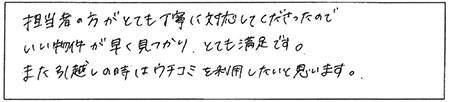 担当者の方がとても丁寧に対応してくださったので
いい物件が早く見つかり、とても満足です。
また引越しの時はウチコミを利用したいと思います。